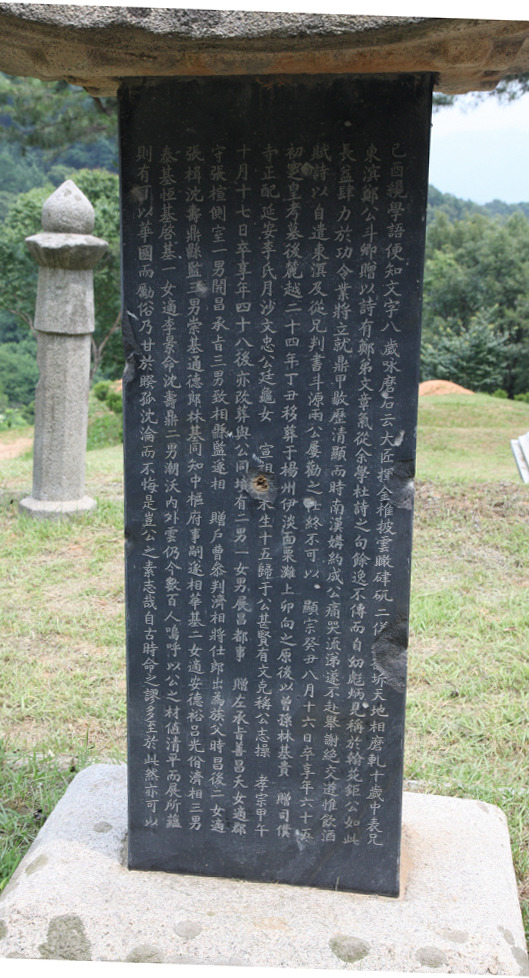 己酉纔學語便知文字八歲咏磨石云大匠揮金椎披雲瞰硉矹二儀 坼天地相磨軋十歲中表兄
東溟鄭公斗卿贈以詩有鄭弟文章氣從余學杜詩之句餘逸不傳而自幼彪炳見稱於翰苑鉅公如此
長益肆力於功令業將立就鼎甲敭歷清顯而時南漢媾約成公痛哭流涕遂不赴擧謝絶交遊惟飮酒
賦詩以自遣東溟及從兄判書斗源兩公屢勸之仕終不可以 顯宗癸丑八月十六日卒享年六十五
初 皇考墓後麓越二十四年丁丑移葬于楊州伊淡面栗灘上卯向之原後以曾孫林基貴 贈司僕
寺正配延安李氏月沙文忠公廷龜女 宣祖 未生十五歸于公甚賢有文克稱公志操 孝宗甲午
十月十七日卒享年四十八後亦改葬與公同墳有二男一女男展昌都事 贈左承旨善昌夭女適鄭
守張楦側室一男開昌承旨三男致相縣監遂相 贈戶曹參判濟相將仕郎出爲族父時昌後二女適
張楫沈壽鼎縣監三男崇基通德郎林基同知中樞府事嗣遂相華基二女適安德裕呂光俗濟相三男
泰基恒基啓基一女適李景命沈壽鼎二男潮沃內外雲仍今數百人嗚呼以公之材値清平而展所蘊
則有 以華國而勵俗乃甘於睽孤沈淪而不悔是豈公之素志哉自古時命之謬多至於此然亦可以